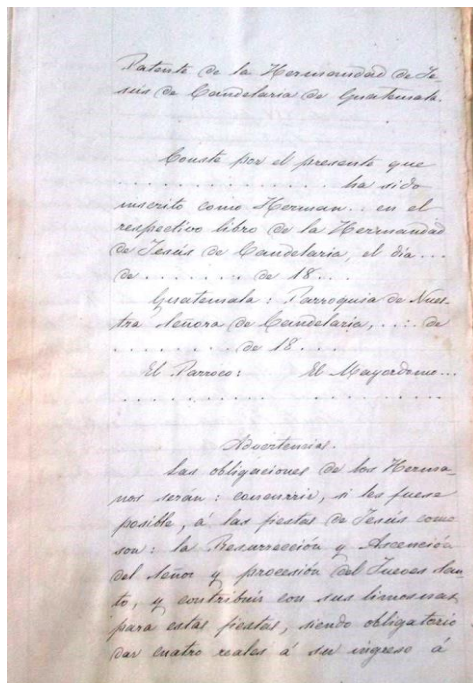 Patente de la Hermandad de Je
sús de Candelaria de Guatemala.
Conste por el presente que
. . . . . . . . . . . . . . . . ha sido
inscrito como Herman... en el
respectivo libro de la Herrmandad
de Jesús de Candelaria, el día ...
de . . . . . . . . de 18 ...
Guatemala: Parroquia de Nues-
tra Señora de Candelaria, ... de
. . . . . . . . . de 18 ...
El Parroco: El Mayordomo...
. . . . . . . . . . . . . . . . . . . . . . . .
Advertencias.
Las obligaciones de los Herma-
nos seran: concurrir, si les fuese
posible, á las fiestas de Jesús como
son: la Resurrección y Ascención
del Señor y procesión del Jueves San
to, y contribuir con sus limosnas
para estas fiestas, siendo obligatorio
dar cuatro reales á su ingreso á